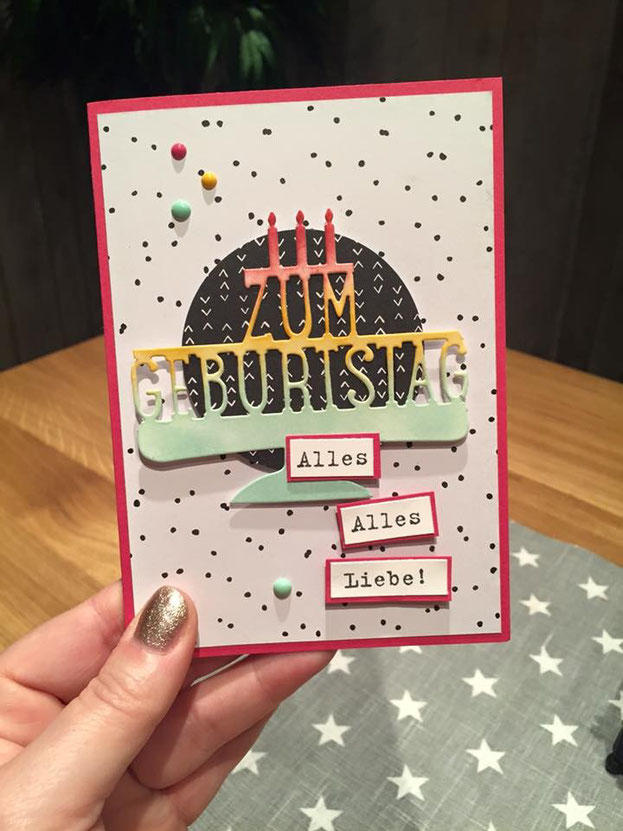 ZUM
GEBURTSTAG
Alles
Alles
Liebe!